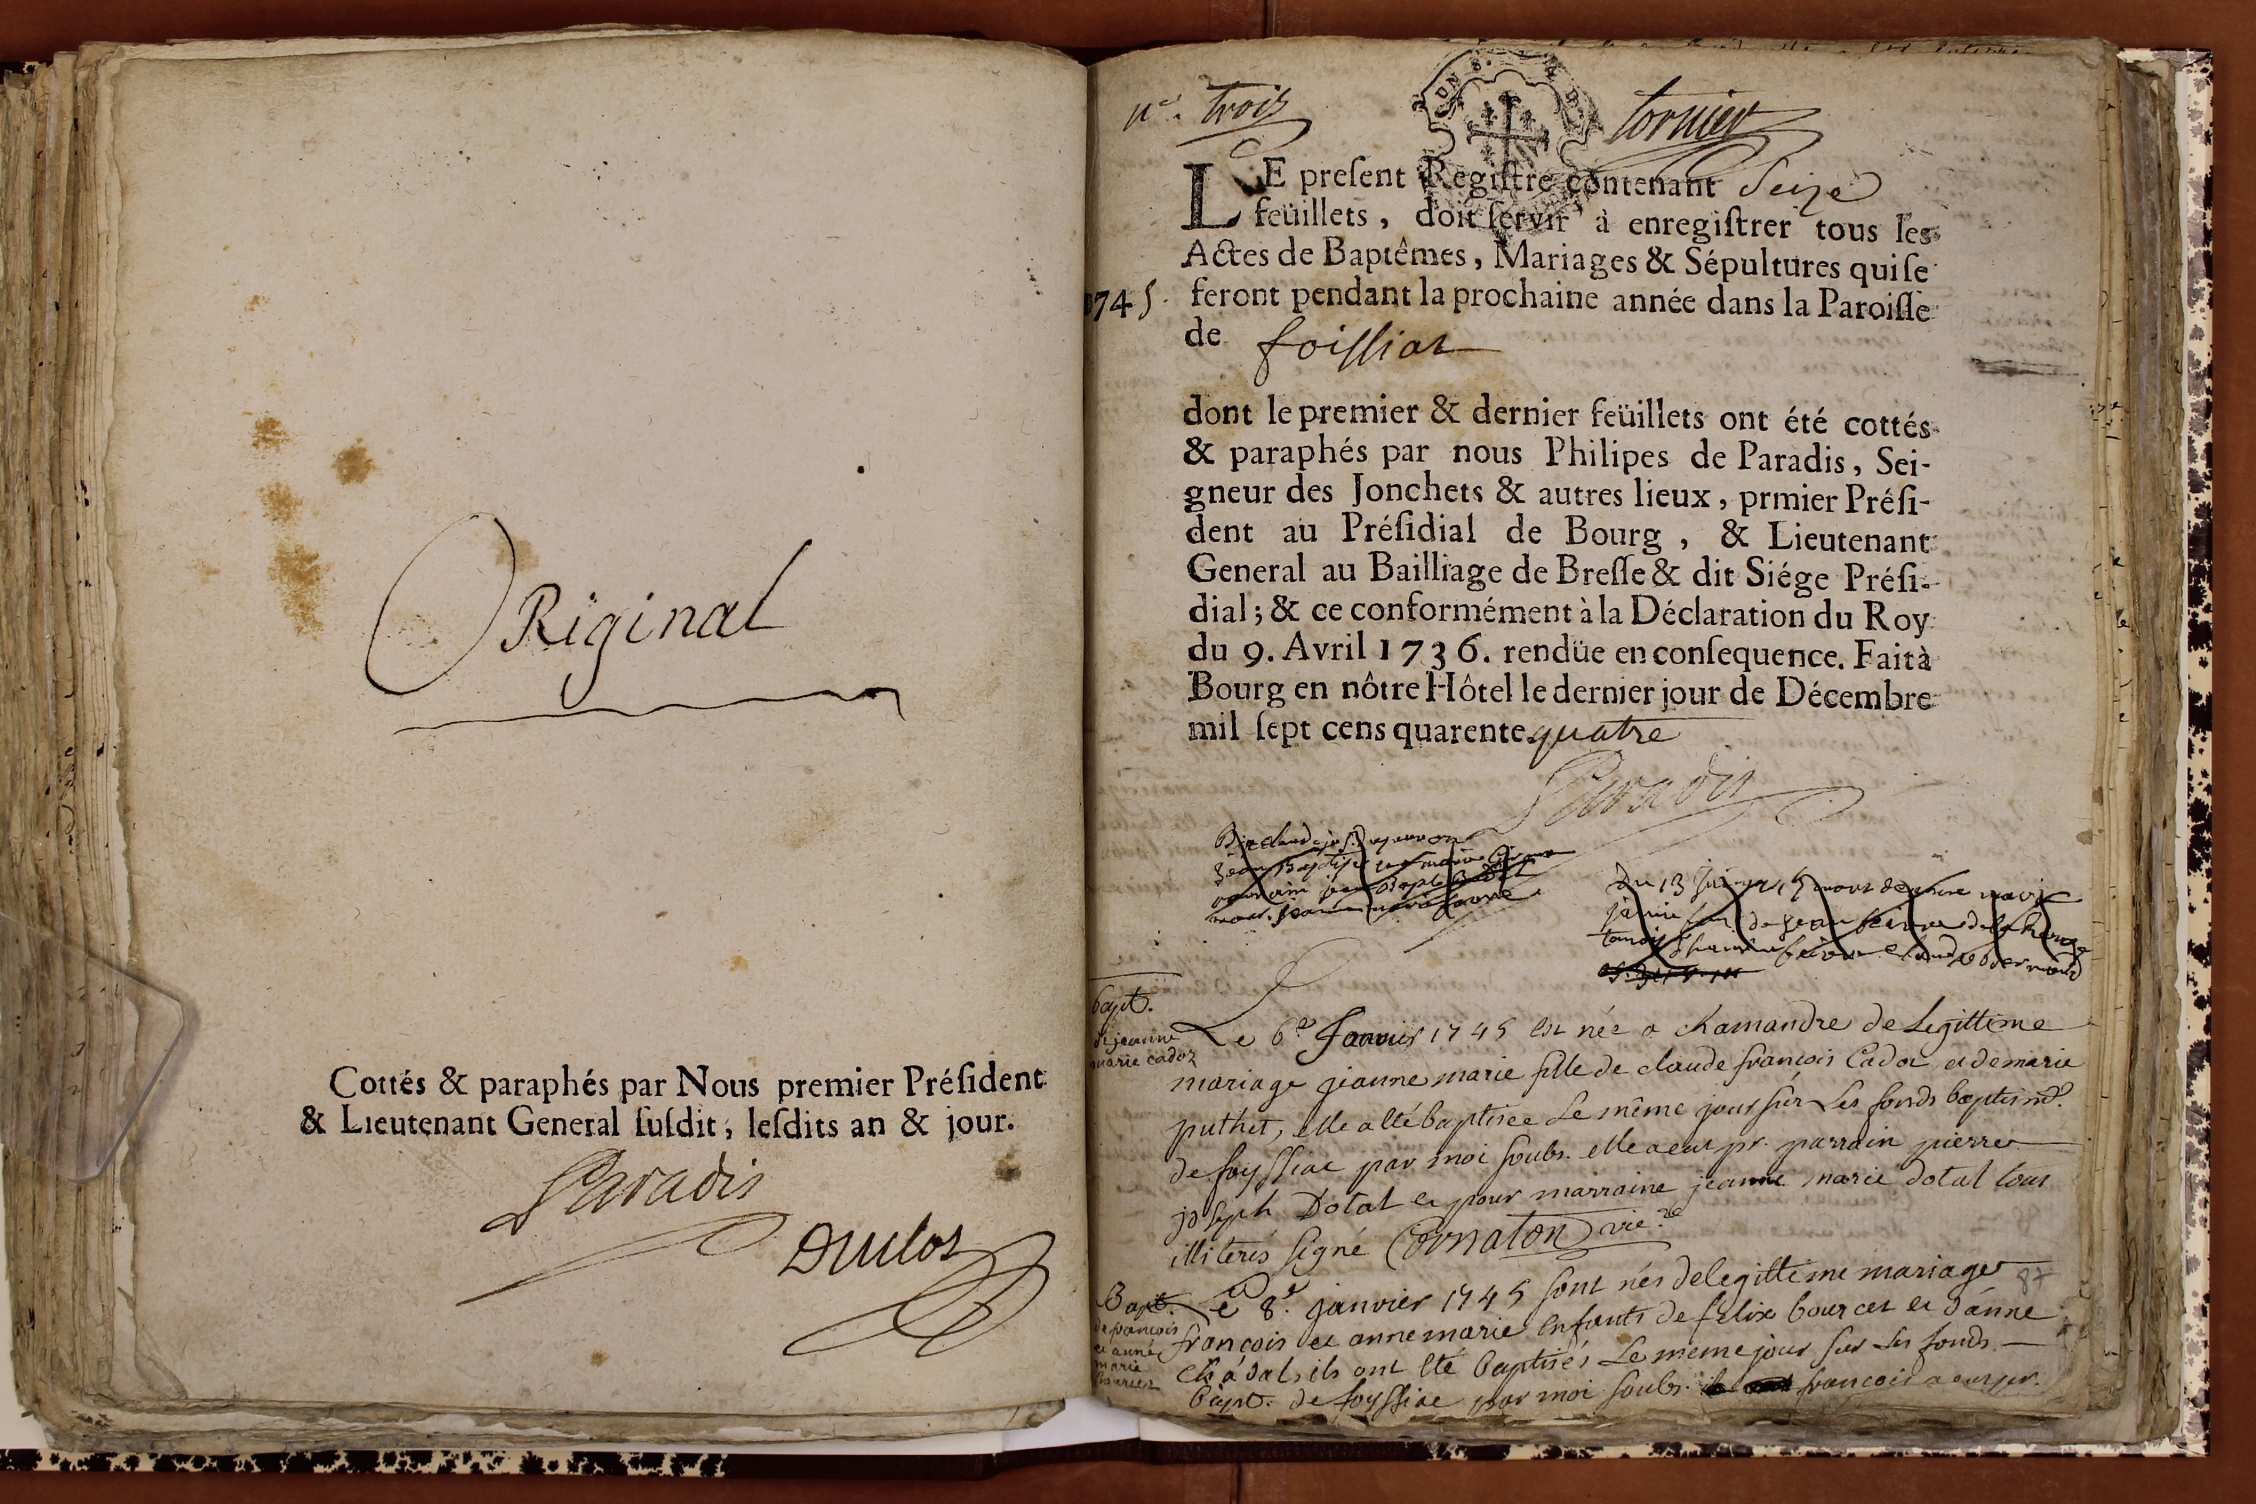 ORiginal
Cottés & paraphés par Nous premier Préſident
& Lieutenant General ſuſdit, leſdits an & jour.
Paradis
Duclos
n.º trois
tornier
LE preſent Regiſtre contenant Seize
feüillets, doit ſervir à enregiſtrer tous les
Actes de Baptêmes, Mariages & Sépultures qui ſe
1745. feront pendant la prochaine année dans la Paroiſſe
de foissiat
dont le premier & dernier feüillets ont été cottés
& paraphés par nous Philipes de Paradis, Sei-
gneur des Jonchets & autres lieux, prmier Préſi-
dent au Préſidial de Bourg, & Lieutenant
General au Bailliage de Breſſe & dit Siége Préſi-
dial; & ce conformément à la Déclaration du Roy
du 9. Avril 1736. rendüe en conſequence. Fait à
Bourg en nôtre Hôtel le dernier jour de Décembre
mil ſept cens quarente quatre
Paradis
bapt.
de jeanne
marie cadoz
Le 6e Janvier 1745 est née a chamandre de Legittime
mariage jeanne marie fille de claude françois Cadoz et de marie
puthet, elle a eté baptisee Le même jour sur Les fonds baptism.
de foyssiac par moi soubs. elle a eut pr. parrain pierre
joseph Dotal et pour marraine jeanne marie dotal tout
illiterés signé Cornaton vic.re
Bapt.
de françois
et anne
marie
Le 8e. janvier 1745 sont nés de legittime mariage
87
françois et anne marie enfants de felix bourcet et d'anne
chadal, ils ont eté baptisés Le meme jour sur Les fonds
bapt. de foyssiac par moi soubs. françois a eut pr.